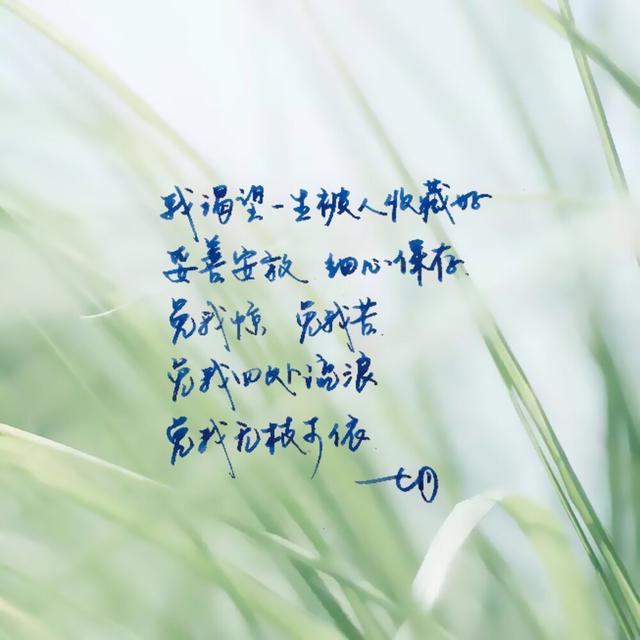 我渴望一生被人收藏好
妥善安放 细心保存
免我惊 免我苦
免我四处流浪
免我无枝可依
七月